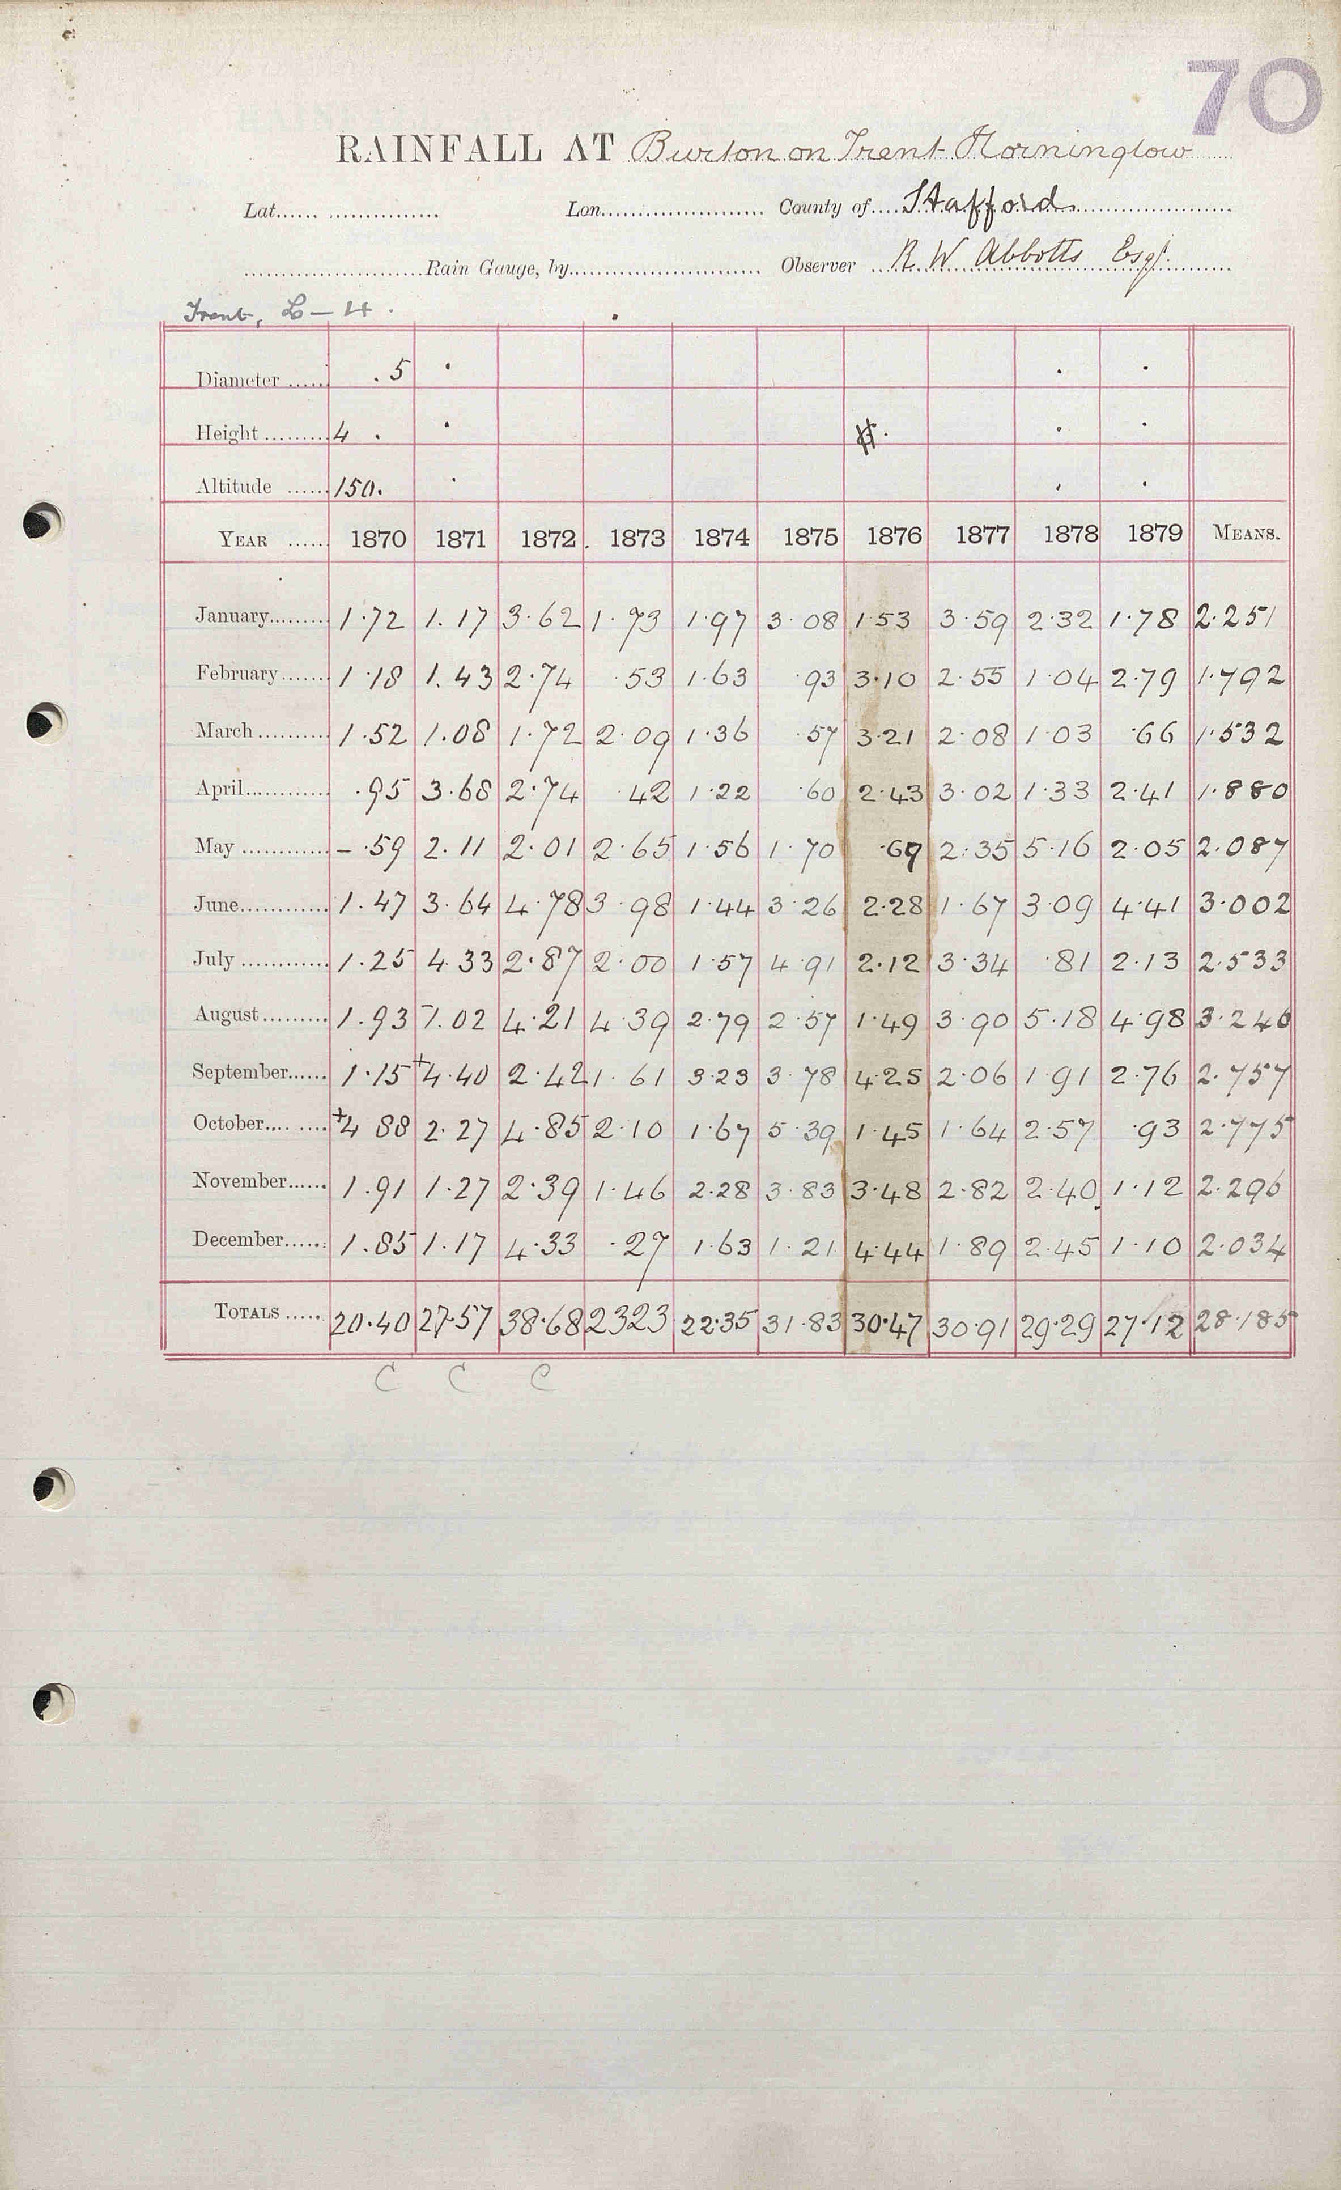 70
RAINFALL AT Burton on Trent Horninglow
Lat. Lon. County of Stafford
Rain Gauge, by Observer R. W. Abbotts Esq.
Trent, L – 4.
Diameter .5
Height 4 .
Altitude 150.
YEAR 1870 1871 1872 1873 1874 1875 1876 1877 1878 1879 MEANS.
January 1.72 1.17 3.62 1.73 1.97 3.08 1.53 3.59 2.32 1.78 2.251
February 1.18 1.43 2.74 .53 1.63 .93 3.10 2.55 1.04 2.79 1.792
March 1.52 1.08 1.72 2.09 1.36 .57 3.21 2.08 1.03 .66 1.532
April .95 3.68 2.74 .42 1.22 .60 2.43 3.02 1.33 2.41 1.880
May – .59 2.11 2.01 2.65 1.56 1.70 .69 2.35 5.16 2.05 2.087
June 1.47 3.64 4.78 3.98 1.44 3.26 2.28 1.67 3.09 4.41 3.002
July 1.25 4.33 2.87 2.00 1.57 4.91 2.12 3.34 .81 2.13 2.533
August 1.93 –1.02 4.21 4.39 2.79 2.57 1.49 3.90 5.18 4.98 3.246
September 1.15 +4.40 2.42 1.61 3.23 3.78 4.25 2.06 1.91 2.76 2.757
October +4.88 2.27 4.85 2.10 1.67 5.39 1.45 1.64 2.57 .93 2.775
November 1.91 1.27 2.39 1.46 2.28 3.83 3.48 2.82 2.40 1.12 2.296
December 1.85 1.17 4.33 .27 1.63 1.21 4.44 1.89 2.45 1.10 2.034
TOTALS 20.40 27.57 38.68 23.23 22.35 31.83 30.47 30.91 29.29 27.12 28.185
C C C